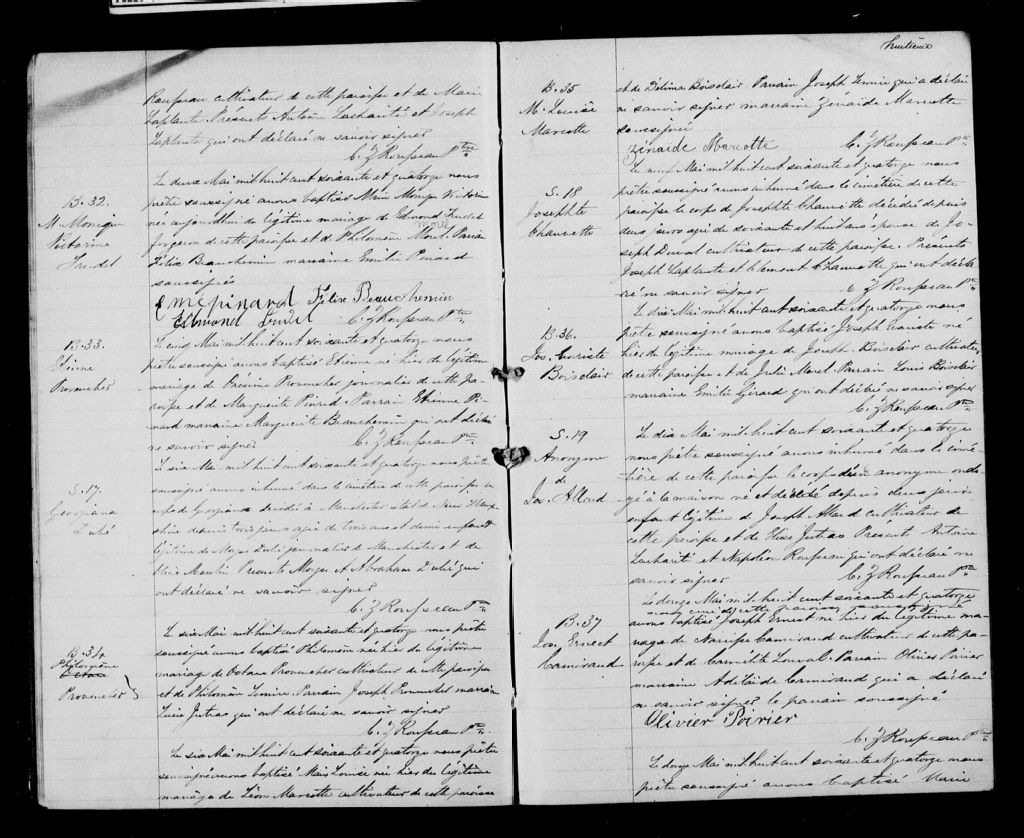 Rousseau cultivateur de cette paroisse et de Marie
Laplante Presents Antoine Lacharité et Joseph
Laplante qui ont déclaré ne savoir signer
C. Z. Rousseau Ptre
B. 32.
M. Monique
Victorine
Trudel
Le deux Mai mil huit cent soixante et quatorze nous
prêtre soussigné avons baptisé Marie Monique Victorine
née aujourd'hui du légitime mariage de Edmond Trudel
forgeron de cette paroisse et de Philomène Morel. Parrain
Félix Beauchemin marraine Emélie Pinard
soussignés
Em. Pinard Félix Beauchemin
Edmond Trudel C. Z. Rousseau Ptre
B. 33.
Etienne
Provencher
Le cinq Mai mil huit cent soixante et quatorze nous
prêtre soussigné avons baptisé Etienne né hier du légitime
mariage de Provencher journalier de cette pa-
roisse et de Marguerite Pinard. Parrain Etienne Pi-
nard marraine Marguerite Beauchemin qui ont déclaré
ne savoir signer C. Z. Rousseau Ptre
S. 17.
Georgiana
Dubé
Le six Mai mil huit cent soixante et quatorze nous prêtre
soussigné avons inhumé dans le cimetière de cette paroisse le
corps de Georgiana décédé à Manchester état de New Hamp-
shire depuis trois jours agée de trois ans et demi enfant
légitime de Moyse Dubé journalier de Manchester et de
Moulin Presents Moyse et Abraham Dubé qui
ont déclaré ne savoir signer
C. Z. Rousseau Ptre
B. 34
Philomène
Octave
Provencher
Le six Mai mil huit cent soixante et quatorze nous prêtre
soussigné avons baptisé Philomène née hier du légitime
mariage de Octave Provencher cultivateur de cette paroisse
et de Philomène Parrain Joseph Provencher marraine
Jutras qui ont déclaré ne savoir signer
C. Z. Rousseau Ptre
Le six Mai mil huit cent soixante et quatorze nous prêtre
soussigné avons baptisé Marie Louise née hier du légitime
mariage de Léon Marcotte cultivateur de cette paroisse
huitième
B. 35
M. Louise
Marcotte
et de Boisclair. Parrain Joseph qui a déclaré
ne savoir signer marraine Zénaide Marcotte
soussignée
Zénaide Marcotte C. Z. Rousseau Ptre
S. 18
Josephte
Chaurette
Le neuf Mai mil huit cent soixante et quatorze nous
prêtre soussigné avons inhumé dans le cimetière de cette
paroisse le corps de Josephte Chaurette décédé depuis
deux jours agé de soixante et huit ans épouse de Jo-
seph Duval cultivateur de cette paroisse. Presents
Joseph Laplante et Clement Chaurette qui ont décla-
ré ne savoir signer C. Z. Rousseau Ptre
B. 36.
Jos. Evariste
Boisclair
Le dix Mai mil huit cent soixante et quatorze nous
prêtre soussigné avons baptisé Joseph Evariste né
hier du légitime mariage de Joseph Boisclair cultivateur
de cette paroisse et de Julie Morel. Parrain Louis Boisclair
marraine Emélie Girard qui ont déclaré ne savoir signer
C. Z. Rousseau Ptre
S. 19
Anonyme
de
Jos. Allard
Le dix Mai mil huit cent soixante et quatorze
nous prêtre soussigné avons inhumé dans le cime-
tière de cette paroisse le corps d'un anonyme ondo-
yé à la maison né et décédé depuis deux jours
enfant légitime de Joseph Allard cultivateur de
cette paroisse et de Elise Jutras Présents Antoine
Lacharité et Napoléon Rousseau qui ont déclaré ne
savoir signer C. Z. Rousseau Ptre
B. 37
Jos. Ernest
Camirand
Le douze Mai mil huit cent soixante et quatorze
nous curé de cette paroisse soussigné
avons baptisé Joseph Ernest né hier du légitime ma-
riage de Narcisse Camirand cultivateur de cette pa-
roisse et de Parrain Olivier Poirier
marraine Adélaïde Camirand qui a déclaré
ne savoir signer le parrain soussigné
Olivier Poirier
C. Z. Rousseau Ptre
Le douze Mai mil huit cent soixante et quatorze nous
prêtre soussigné avons baptisé Marie